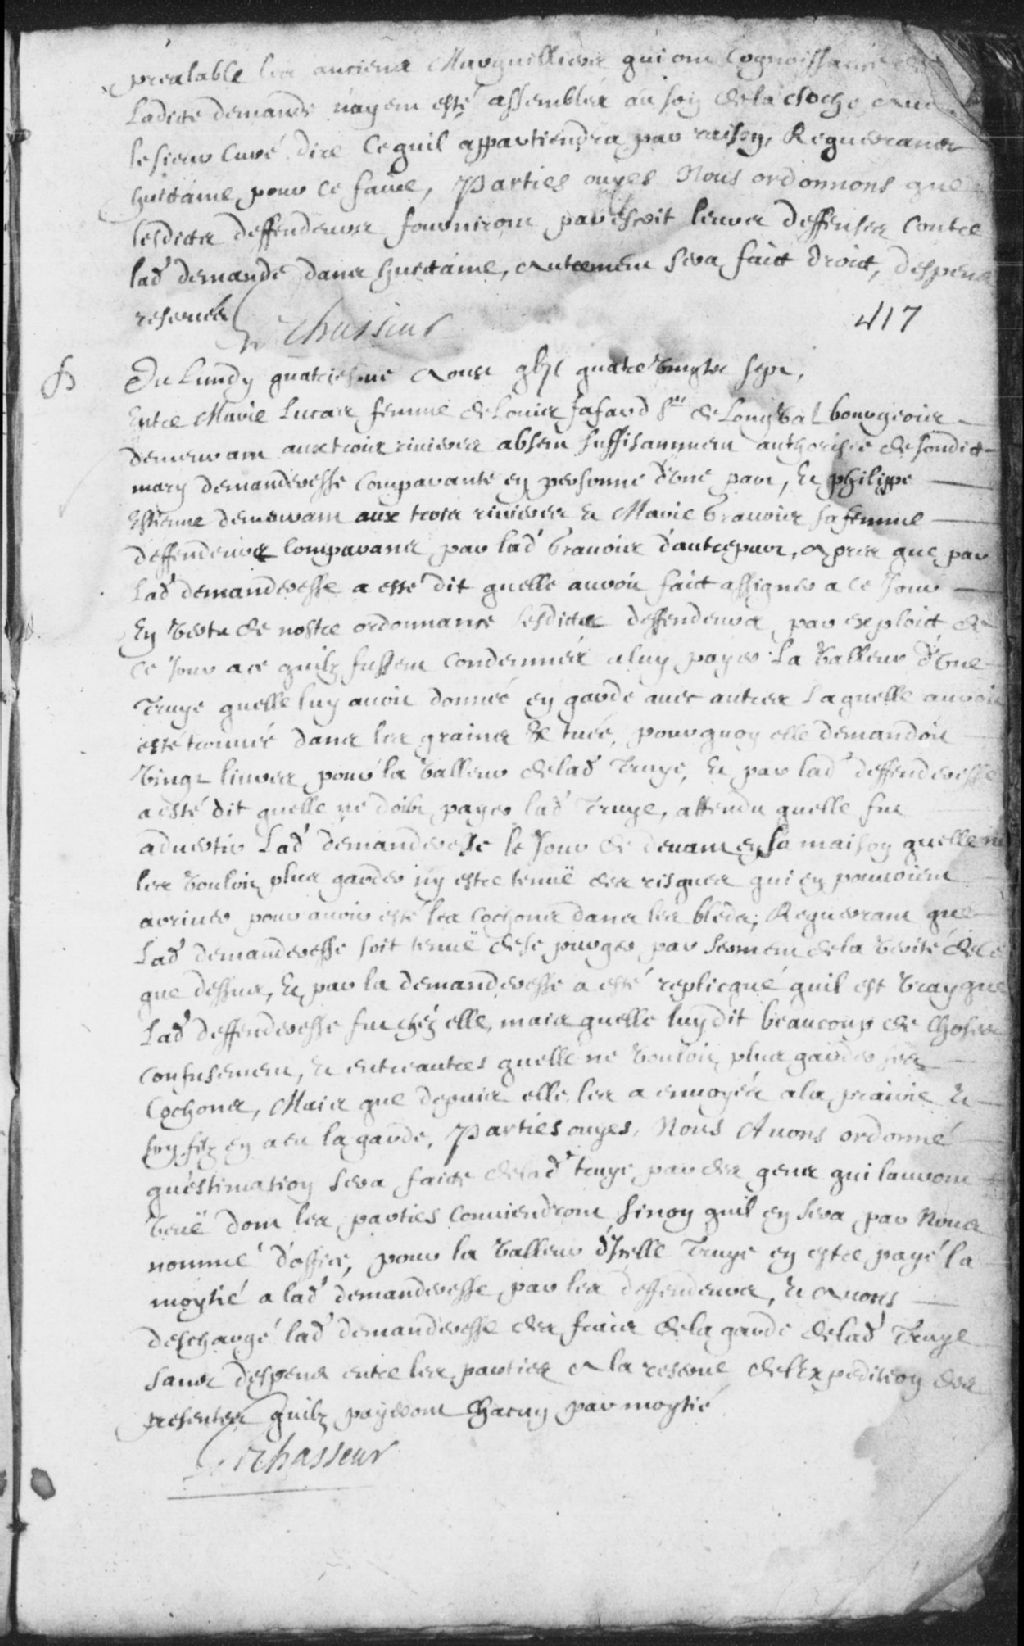 prealable les anciens Marguilliers qui ont Cognoissance de
Ladicte demande nayent esté assemblés au son de la cloche avec
le sieur Curé dire Ce quil appartiendra par raison, Requerant
huictaine pour ce faire, Parties ouyes Nous ordonnons que
lesdicts deffendeurs fourniront par escrit leurs deffenses contre
lad demande dans huictaine, autrement sera faict droict, despens
reserués
Lechasseur
417
Du Lundy quatriesme Aoust gbjc quatre vingts sept,
Entre Marie Lucas femme de Louis Fafard Sr de Longval bourgeois
demeurant aux trois rivieres absent suffisamment authorisée de sondict
mary demanderesse Comparante en personne d'une part, Et Philippe
Estienne demeurant aux trois rivieres Et Marie Gravois sa femme
deffendeurs Comparans par lad Gravois d'autre part, Apres que par
Lad demanderesse a esté dit quelle auroit faict assigner a ce Jour
En vertu de nostre ordonnance lesdicts deffendeurs par exploict de
ce Jour a ce quilz fussent condemnés a luy payer La valleur d'une
Truye quelle luy avoit donnée en garde avec autres laquelle auroit
esté trouvée dans les grains Et tuée, pourquoy elle demandoit
vingt livres pour la valleur de lad Truye, Et par lad deffenderesse
a esté dit quelle ne doibt payer lad Truye, attendu quelle fut
advertir Lad demanderesse le Jour de devant en sa maison quelle ne
les vouloit plus garder ny estre tenuë des risques qui en pouvoient
arriver pour avoir esté les Cochons dans les bleds, Requerant que
Lad demanderesse soit tenuë de se purger par serment de la verité de ce
que dessus, Et par la demanderesse a esté replicqué quil est vray que
Lad deffenderesse fut chéz elle, mais quelle luy dit beaucoup de choses
confusement, Et entre autres quelle ne vouloit plus garder ses
Cochons, Mais que depuis elle les a envoyés a la prairie Et
son filz en a eu la garde, Parties ouyes, Nous Avons ordonné
qu'estimation sera faicte de lad truye par des gens qui lauront
veuë dont les parties conviendront sinon quil en sera par Nous
nommé d'office, pour la valleur d'Icelle Truye en estre payé la
moytié a lad demanderesse par les deffendeurs, Et Avons
deschargé lad demanderesse des frais de la garde de lad Truye
sans despens entre les parties A la reserve de l'Expedition des
presentes quilz payeront Chacun par moytié
Lechasseur